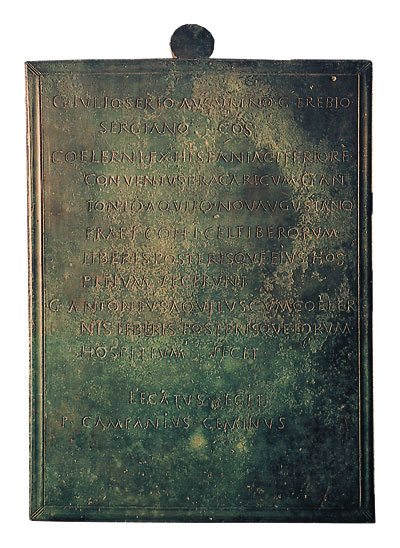 G IVLIO SERIO AVGVRINO G TREBIO
SERGIANO COS
COELERNI EX HISPANIA CITERIORE
CONVENTVS BRACARI CVM G AN
TONIO AQVILO NOVAVGVSTANO
PRAEF COH I CELTIBERORVM
LIBERIS POSTERISQVE EIVS HOS
PITIVM FECERVNT
G ANTONIVS AQVILVS CVM COELER
NIS LIBERIS POSTERISQVE EORVM
HOSPITIVM FECIT
LEGATVS EGIT
P CAMPANIVS GEMINVS